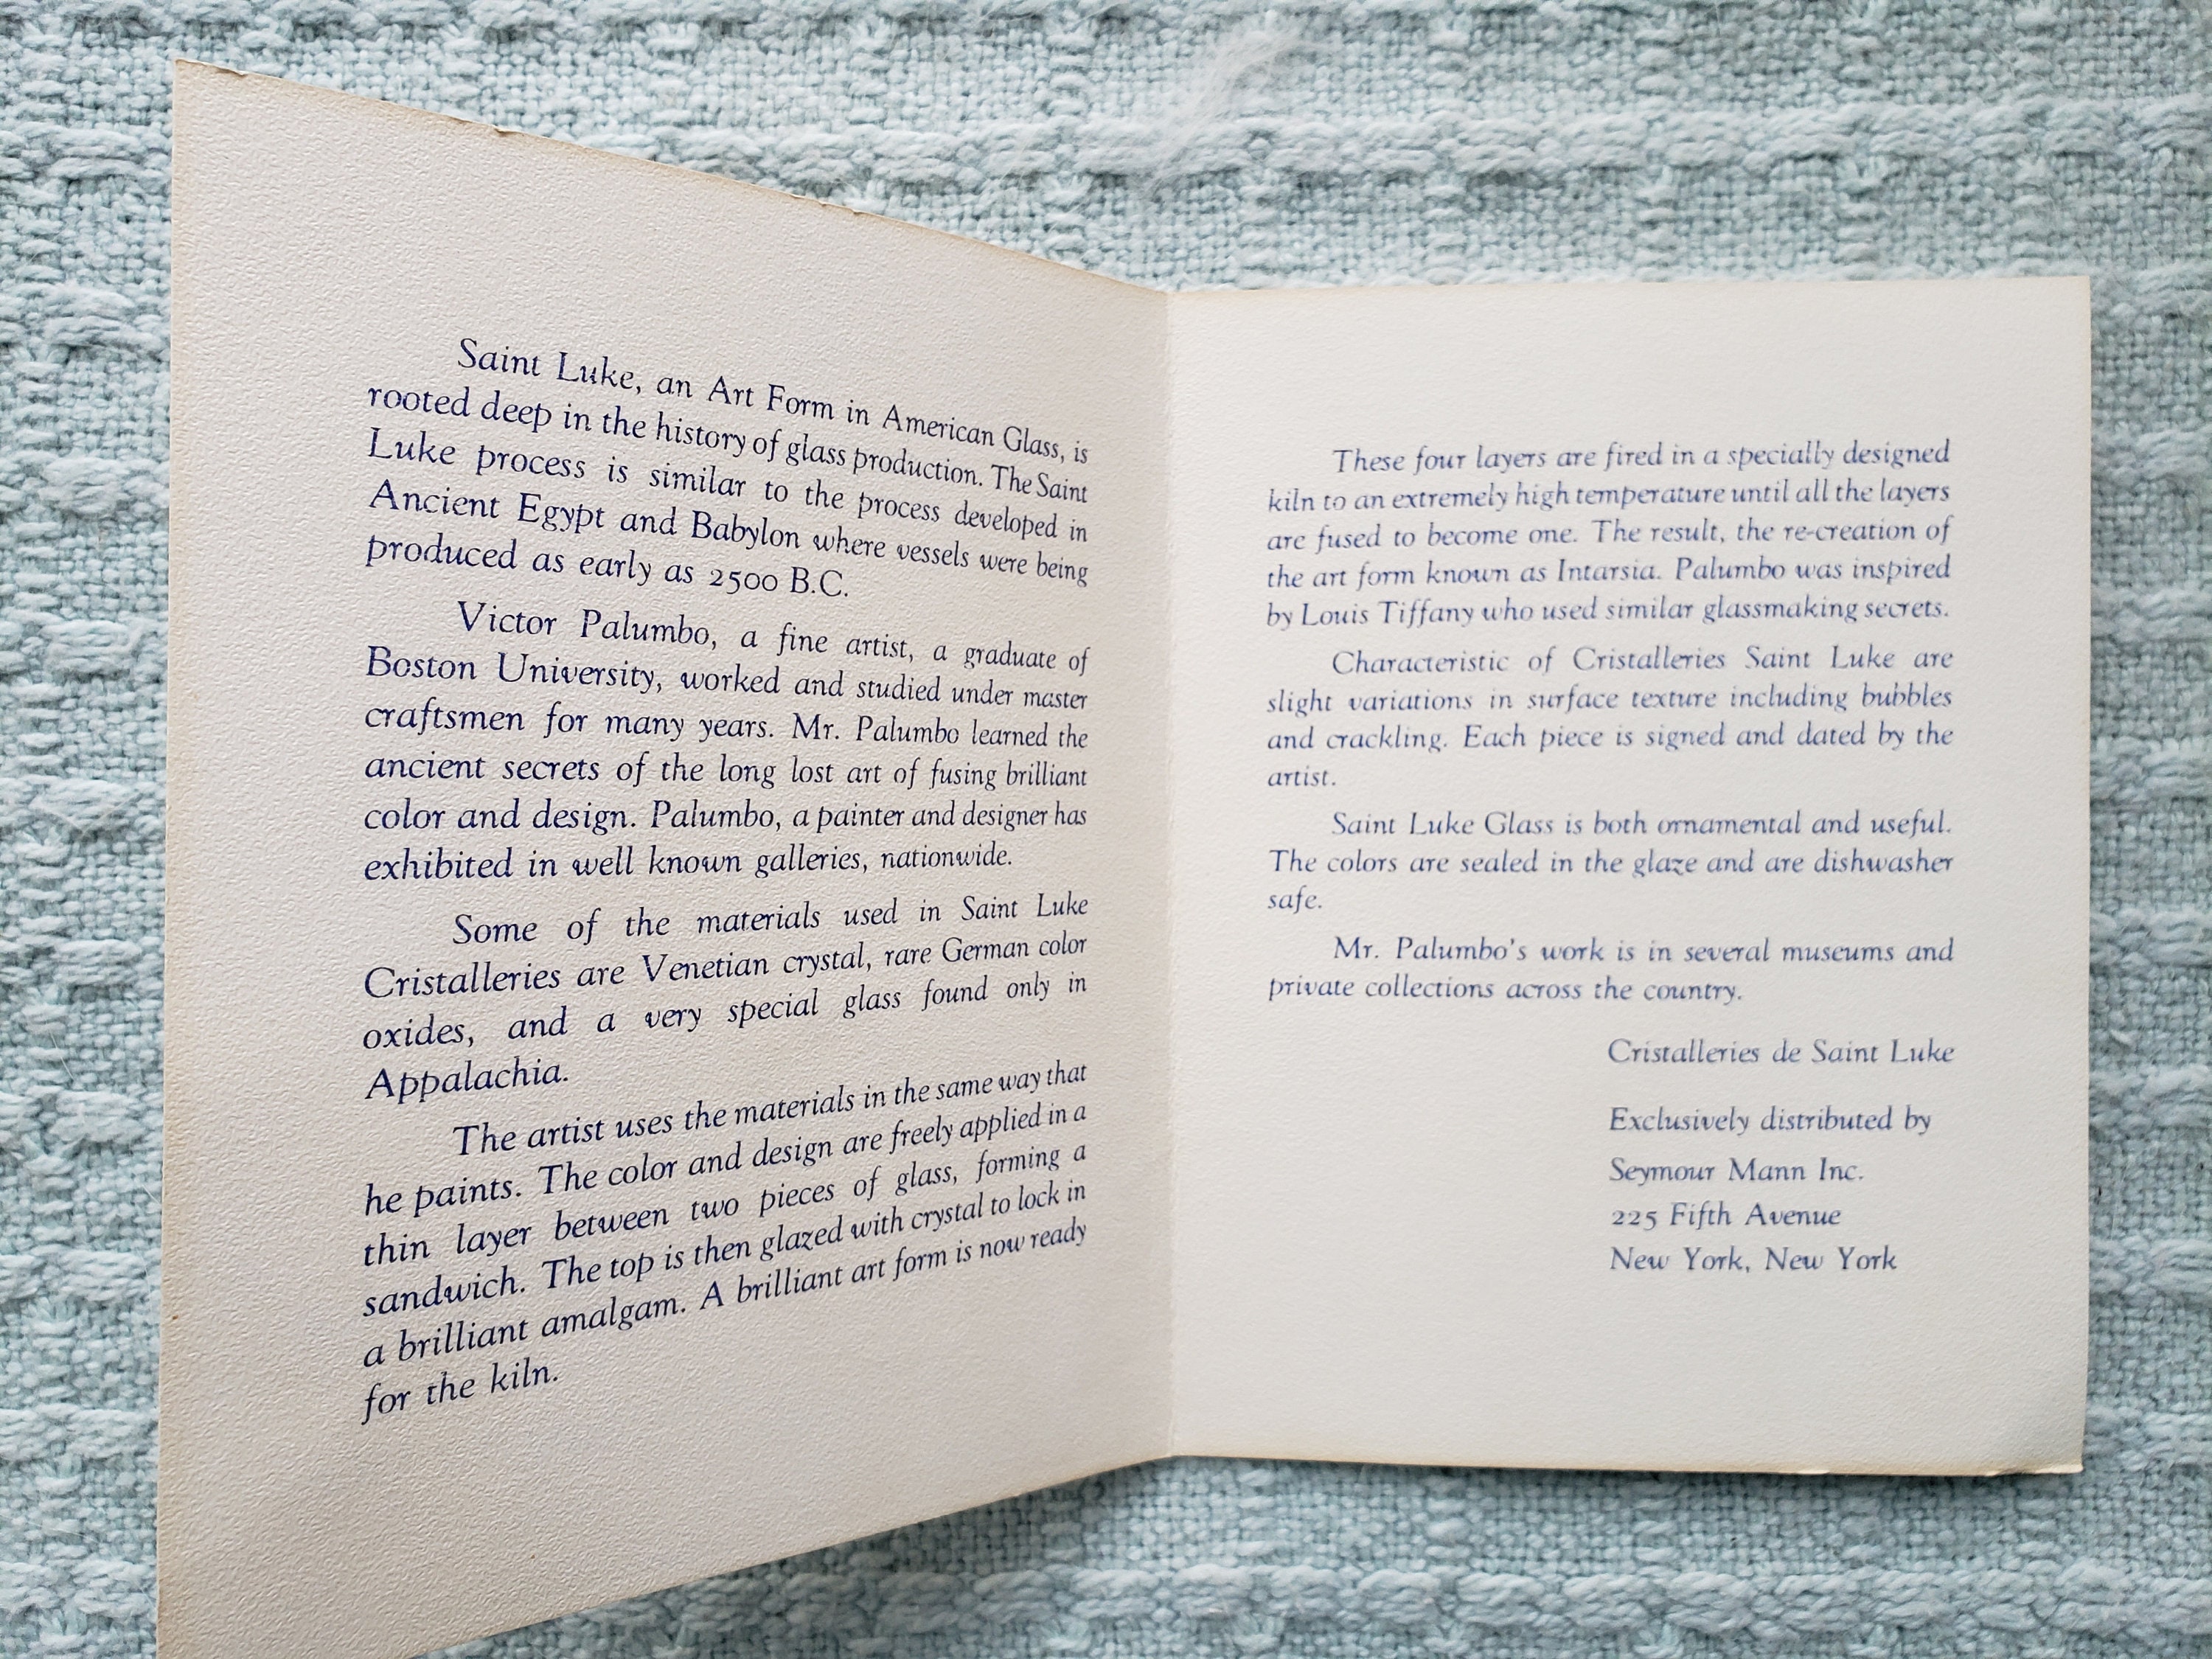 Saint Luke, an Art Form in American Glass, is
rooted deep in the history of glass production. The Saint
Luke process is similar to the process developed in
Ancient Egypt and Babylon where vessels were being
produced as early as 2500 B.C.
Victor Palumbo, a fine artist, a graduate of
Boston University, worked and studied under master
craftsmen for many years. Mr. Palumbo learned the
ancient secrets of the long lost art of fusing brilliant
color and design. Palumbo, a painter and designer has
exhibited in well known galleries, nationwide.
Some of the materials used in Saint Luke
Cristalleries are Venetian crystal, rare German color
oxides, and a very special glass found only in
Appalachia.
The artist uses the materials in the same way that
he paints. The color and design are freely applied in a
thin layer between two pieces of glass, forming a
sandwich. The top is then glazed with crystal to lock in
a brilliant amalgam. A brilliant art form is now ready
for the kiln.
These four layers are fired in a specially designed
kiln to an extremely high temperature until all the layers
are fused to become one. The result, the re-creation of
the art form known as Intarsia. Palumbo was inspired
by Louis Tiffany who used similar glassmaking secrets.
Characteristic of Cristalleries Saint Luke are
slight variations in surface texture including bubbles
and crackling. Each piece is signed and dated by the
artist.
Saint Luke Glass is both ornamental and useful.
The colors are sealed in the glaze and are dishwasher
safe.
Mr. Palumbo's work is in several museums and
private collections across the country.
Cristalleries de Saint Luke
Exclusively distributed by
Seymour Mann Inc.
225 Fifth Avenue
New York, New York